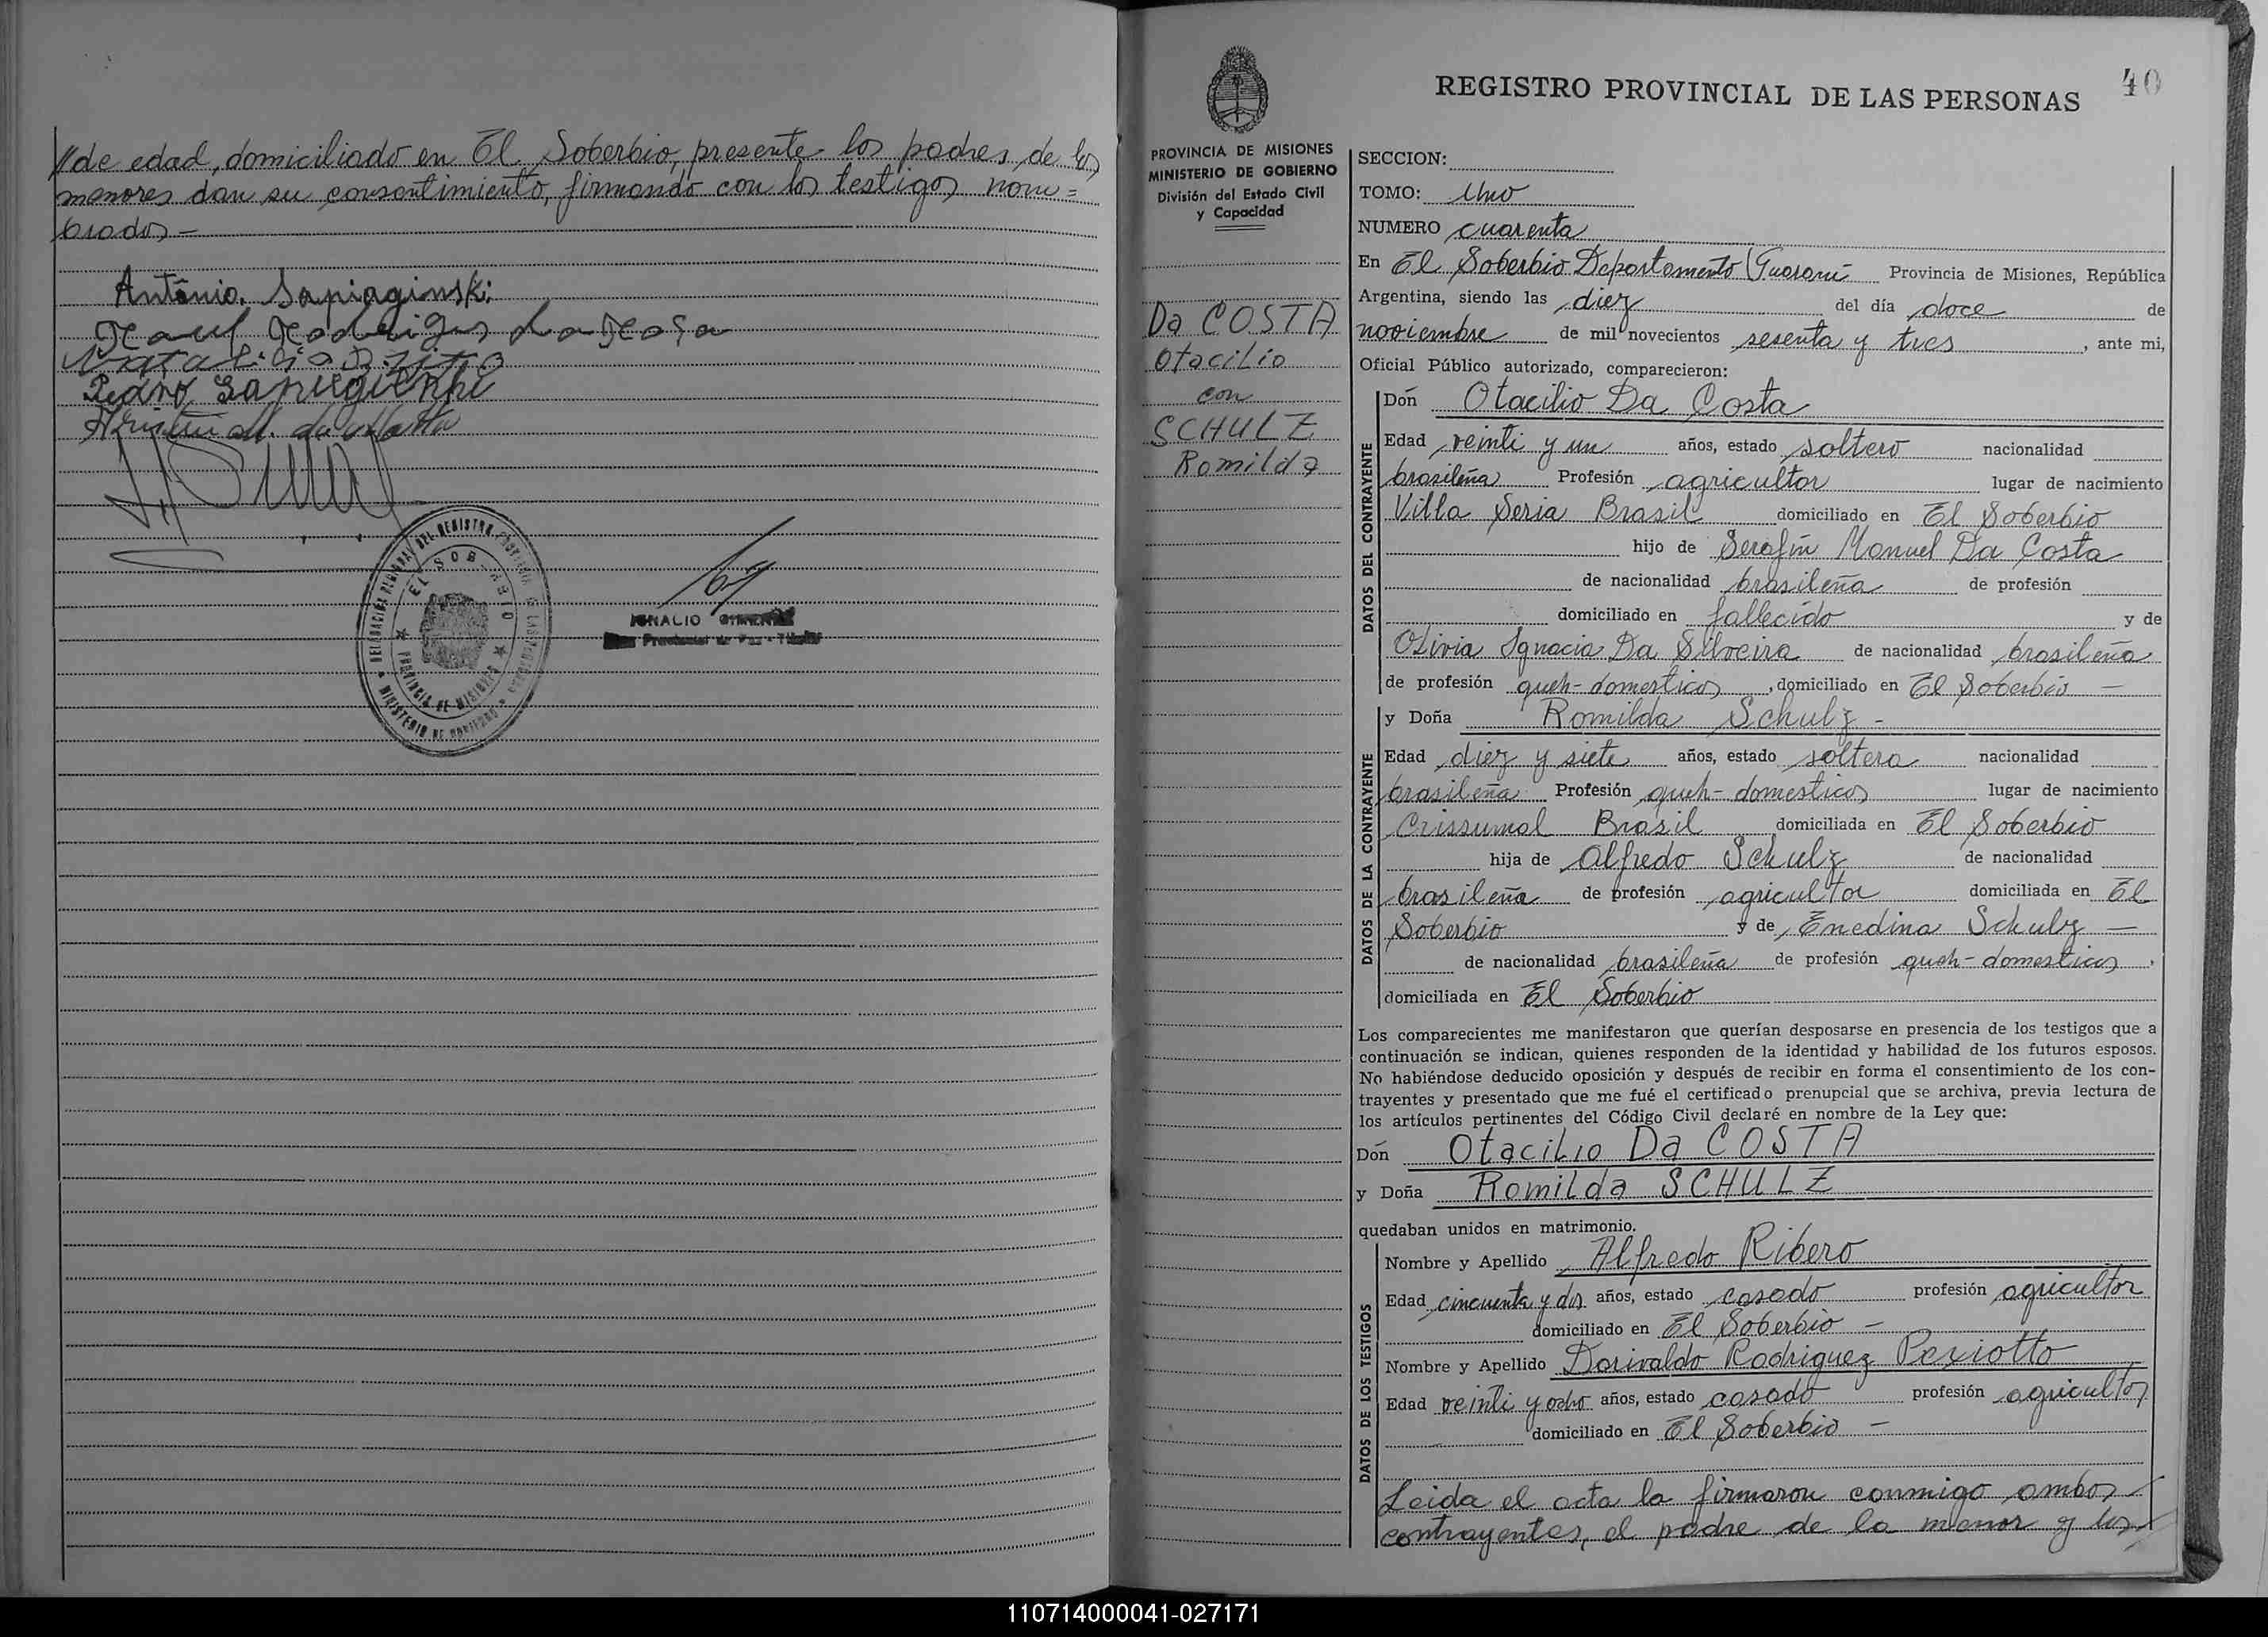 //de edad, domiciliado en El Soberbio, presente los padres de los
menores dan su consentimiento, firmando con los testigos nom=
brados -
Antônio. Sapiaginski
Pedro
EL SOBERBIO
PROVINCIA DE MISIONES
IGNACIO
40
REGISTRO PROVINCIAL DE LAS PERSONAS
PROVINCIA DE MISIONES
MINISTERIO DE GOBIERNO
División del Estado Civil
y Capacidad
Da COSTA
Otacilio
con
SCHULZ
Romilda
SECCION:
TOMO: Uno
NUMERO cuarenta
En El Soberbio Departamento Guaraní Provincia de Misiones, República
Argentina, siendo las diez del día doce de
noviembre de mil novecientos sesenta y tres, ante mi,
Oficial Público autorizado, comparecieron:
DATOS DEL CONTRAYENTE
Don Otacilio Da Costa
Edad veinti y un años, estado soltero nacionalidad
brasileña Profesión agricultor lugar de nacimiento
Villa Seria Brasil domiciliado en El Soberbio
hijo de Serafin Manuel Da Costa
de nacionalidad brasileña de profesión
domiciliado en fallecido y de
Olivia Ignacia Da Silveira de nacionalidad brasileña
de profesión queh-domesticos, domiciliado en El Soberbio -
DATOS DE LA CONTRAYENTE
y Doña Romilda Schulz -
Edad diez y siete años, estado soltera nacionalidad
brasileña Profesión queh-domesticos lugar de nacimiento
Crissumal Brasil domiciliada en El Soberbio
hija de Alfredo Schulz de nacionalidad
brasileña de profesión agricultor domiciliada en El
Soberbio y de Enedina Schulz -
de nacionalidad brasileña de profesión queh-domesticos.
domiciliada en El Soberbio
Los comparecientes me manifestaron que querían desposarse en presencia de los testigos que a
continuación se indican, quienes responden de la identidad y habilidad de los futuros esposos.
No habiéndose deducido oposición y después de recibir en forma el consentimiento de los con-
trayentes y presentado que me fué el certificado prenupcial que se archiva, previa lectura de
los artículos pertinentes del Código Civil declaré en nombre de la Ley que:
Don Otacilio Da COSTA
y Doña Romilda SCHULZ
quedaban unidos en matrimonio.
DATOS DE LOS TESTIGOS
Nombre y Apellido Alfredo Ribero
Edad cincuenta y dos años, estado casado profesión agricultor
domiciliado en El Soberbio -
Nombre y Apellido Dorivaldo Rodriguez Pexiotto
Edad veinti y ocho años, estado casado profesión agricultor
domiciliado en El Soberbio -
Leida el acta la firmaron conmigo ambos
contrayentes, el padre de la menor y los
110714000041-027171